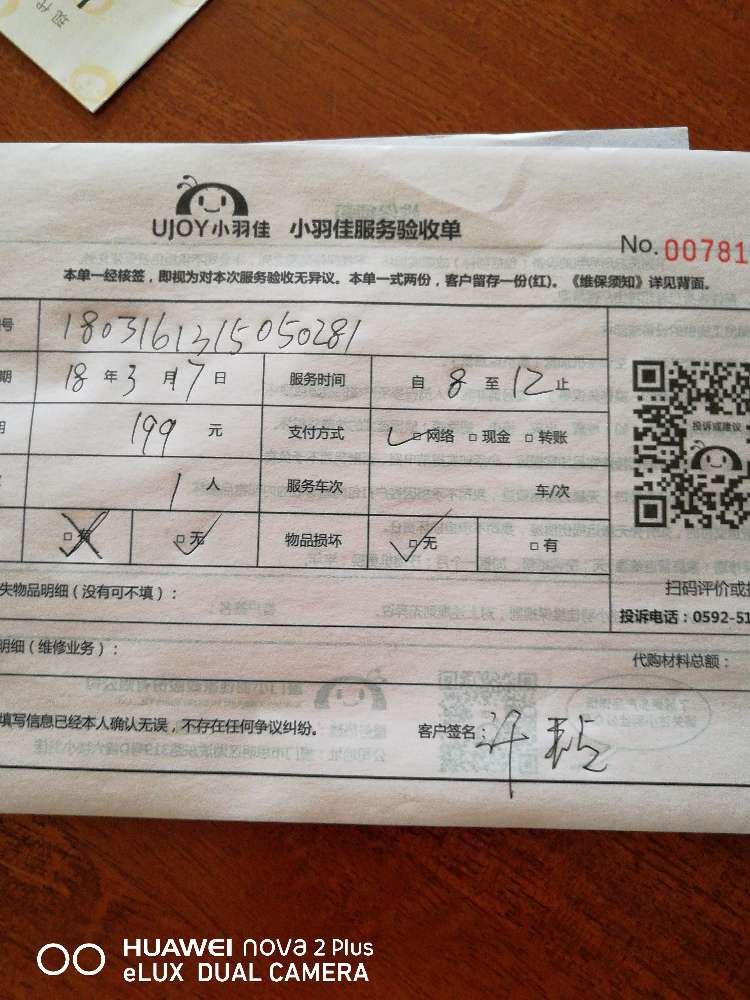 现代
UJOY小羽佳 小羽佳服务验收单
No. 00781
本单一经核签，即视为对本次服务验收无异议。本单一式两份，客户留存一份(红)。《维保须知》详见背面。
号 1803161315050281
期 18 年 3 月 17 日 服务时间 自 8 至 12 止
199 元 支付方式 网络 现金 转账
投诉或建议
1 人 服务车次 车/次
有 无 物品损坏 无 有
失物品明细（没有可不填）：
扫码评价或
投诉电话：0592-51
明细（维修业务）：
代购材料总额：
填写信息已经本人确认无误，不存在任何争议纠纷。
客户签名： 许
HUAWEI nova 2 Plus
eLUX DUAL CAMERA